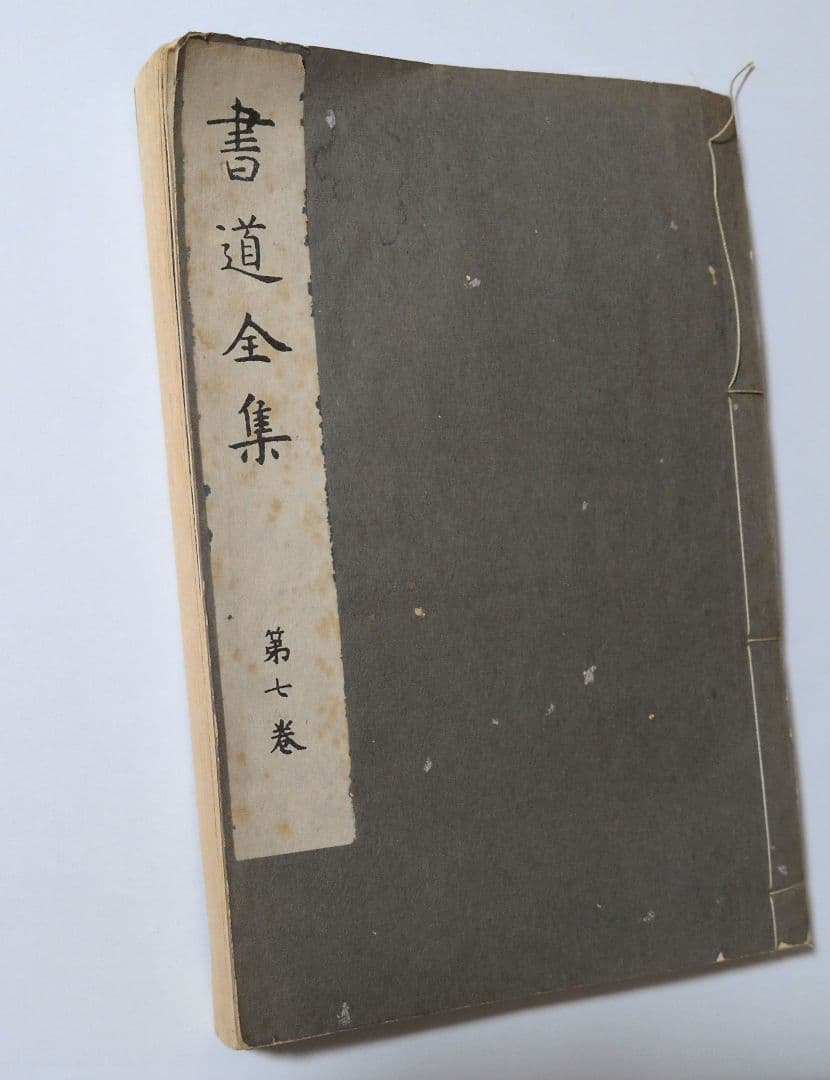 書道全集
第七卷